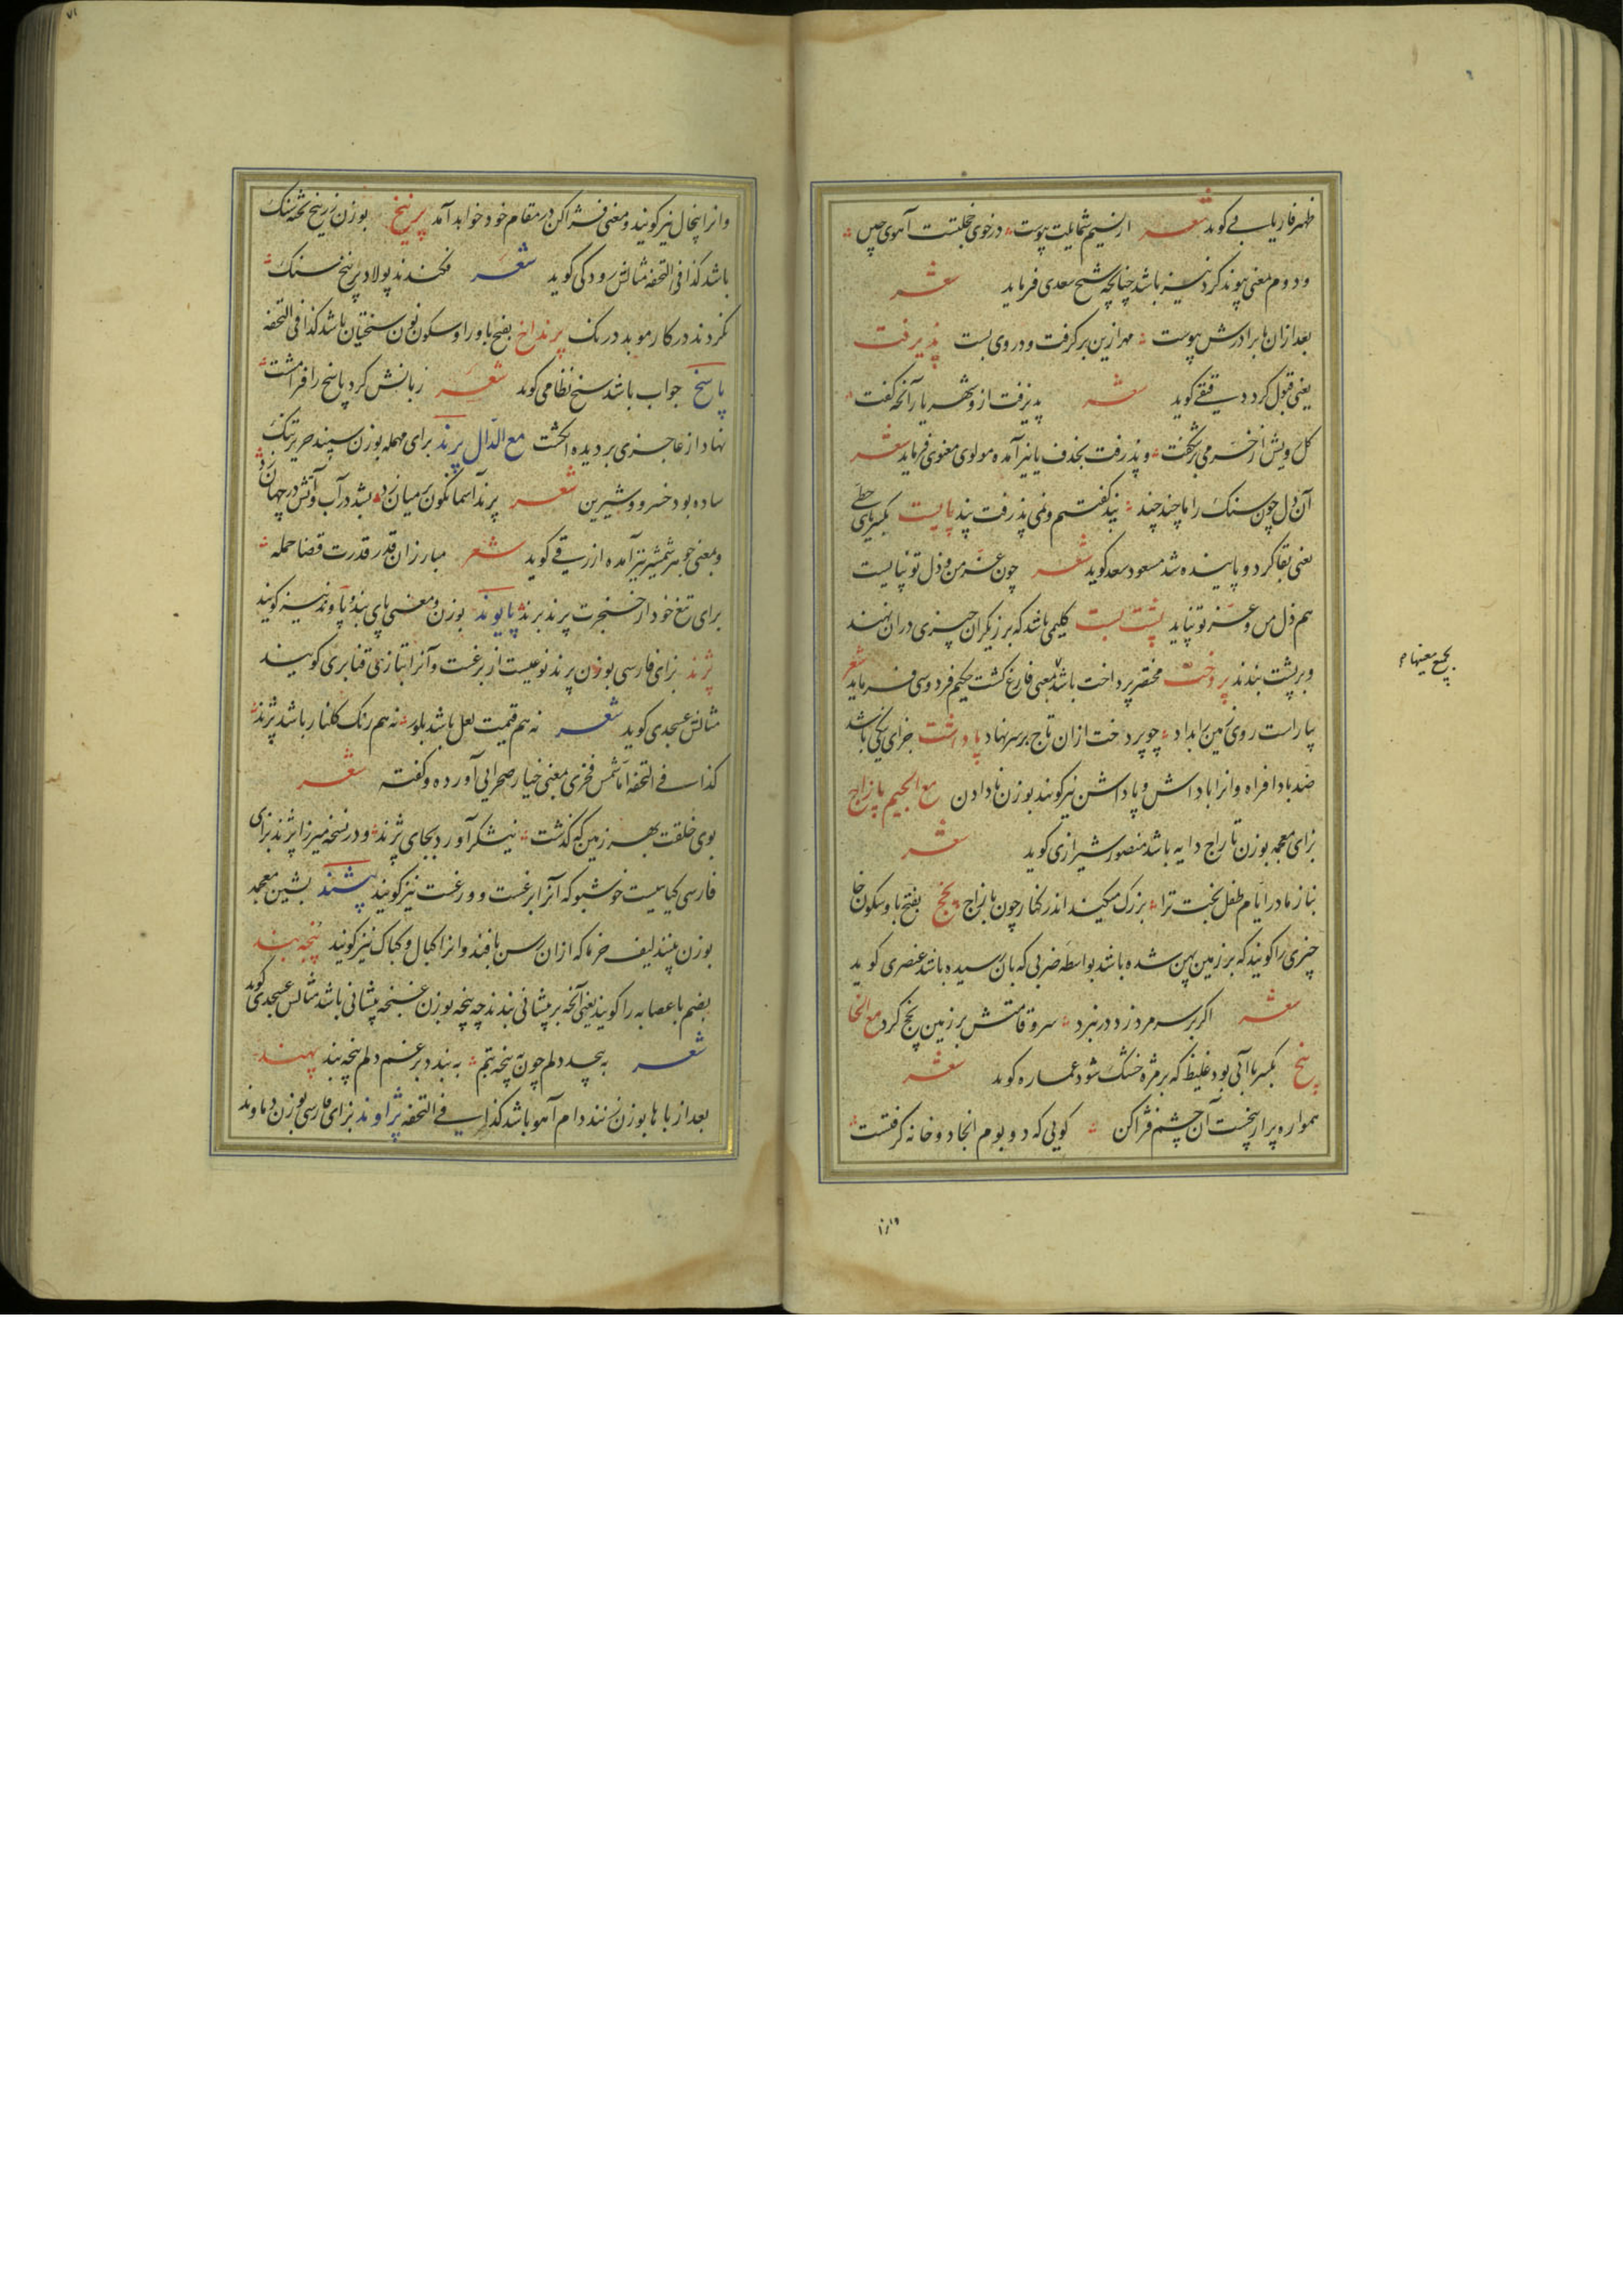 ظهیر فاریابی گوید شعر از نسیم شمایلت پیوست درخوی خجلتست آهوی چین
و دوم معنی پیوند کرد نیز باشد چنانچه شیخ سعدی فرماید شعر
بعد ازان با برادرش پیوست مهر ازین برگرفت و در وی بست پذیرفت
یعنی قبول کرد دقیقی گوید شعر پذیرفت ازو شهریار آنچه گفت
گل رویش از خرمی برشکفت و پذرفت بحذف یا نیز آمده مولوی معنوی فرماید شعر
آن دل چون سنگ را ما چند چند پند گفتیم و نمی پذرفت پند پایست بکسر یای حطی
یعنی بقا کرد و پاینده شد مسعود سعد گوید شعر چون عز من و ذل تو نپایست
هم ذل من و عز تو نپاید پشت بست گلیمی باشد که برزیگران چیزی دران نهند
و بر پشت بندند پردخت مختصر پرداخت باشد بمعنی فارغ گشت حکیم فردوسی فرماید شعر
بیاراست روی زمین را بداد چو پردخت ازان تاج بر سر نهاد پاداشت جزای نیکی باشد
ضد بادافراه و انرا پاداش و پاداشن نیز گویند بوزن نادادن مع الجیم پازاج
بزای معجمه بوزن تاراج دایه باشد منصور شیرازی گوید شعر
بناز مادر ایام طفل بخت ترا بزرگ میکند اندر کنار چون پازاج پخج بفتح با و سکون خا
چیزی را گویند که بر زمین پهن شده باشد بواسطه ضربی که بان رسیده باشد عنصری گوید
شعر اگر بر سر مرد زد در نبرد سر و قامتش بر زمین پخج کرد مع الخا
پیخ بکسر با آبی بود غلیظ که بر مژه خشک شود عماره گوید شعر
همواره پر از پیخست آن چشم فژاکن گویی که دو بوم انجا دو خانه گرفتست
بجمیع معنیها
وانرا
وانرا پیخال نیز گویند و معنی فژاکن در مقام خود خواهد آمد پرنیخ بوزن زرنیخ تخته سنگ
باشد کذا فی التحفه مثالش رودکی گوید شعر فکندند پولاد پرنیخ سنگ
نکردند در کار موبد درنگ پرنداخ بفتح با و را و سکون نون سختیان باشد کذا فی التحفه
پاسخ جواب باشد شیخ نظامی گوید شعر زبانش کرد پاسخ را فرامشت
نهاد از عاجزی بر دیده انگشت مع الدال پرند برای مهمله بوزن سپند حریر تنک
ساده بود خسرو و شیرین شعر پرند آسمانگون بر میان زد بشد در آب و آتش در جهان زد
و بمعنی جوهر شمشیر نیز آمده ازرقی گوید شعر مبارزان قدر قدرت قضا حمله
برای تیغ خود از خنجرت پرند برند پایوند بوزن و معنی پای بند و پاوند نیز گویند
پژند بزای فارسی بوزن پرند نوعیست از برغست و آنرا بتازی قنابری گویند
مثالش عسجدی گوید شعر نه هم قیمت لعل باشد بلور نه هم رنگ گلنار باشد پژند
کذا فی التحفه اما شمس فخری بمعنی خیار صحرایی آورده و گفته شعر
بوی خلقت بهر زمین که گذشت نیشکر آورد بجای پژند و در نسخه میرزا پژند بزای
فارسی گیاهیست خوشبو که آنرا برغست و ورغست نیز گویند پشند بشین معجمه
بوزن پسند لیف خرما که ازان رسن بافند و انرا کبال و کباک نیز گویند پنجه بند
بضم با عصابه را گویند یعنی آنچه بر پیشانی بندند چه پنجه بوزن غنچه پیشانی باشد مثالش عسجدی گوید
شعر به پیچد دلم چون ز پنجه بتم به بندد برغم دلم پنجه بند پهند
بعد از با ها بوزن نند دام آهو باشد کذا فی التحفه پژاوند بزای فارسی بوزن دماوند